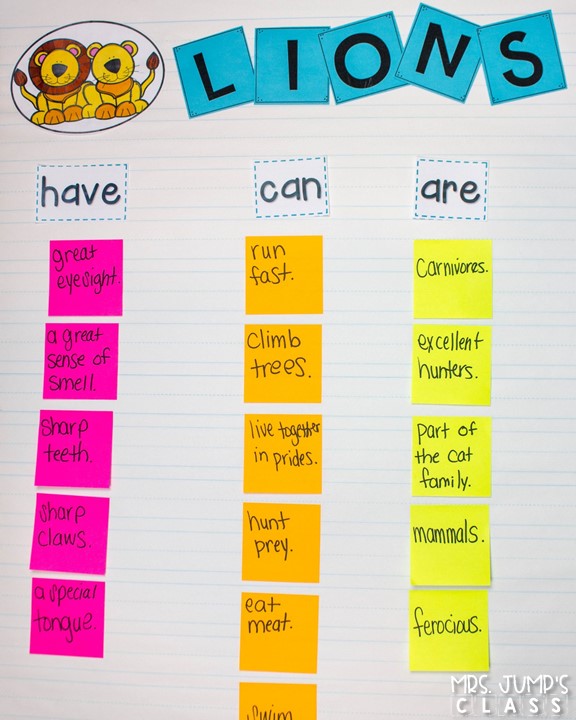 LIONS
have
great
eyesight.
a great
sense of
smell.
sharp
teeth.
sharp
claws.
a special
tongue.
can
run
fast.
climb
trees.
live together
in prides.
hunt
prey.
eat
meat.
swim
are
Carnivores.
excellent
hunters.
part of
the cat
family.
mammals.
ferocious.
MRS. JUMP'S
CLASS